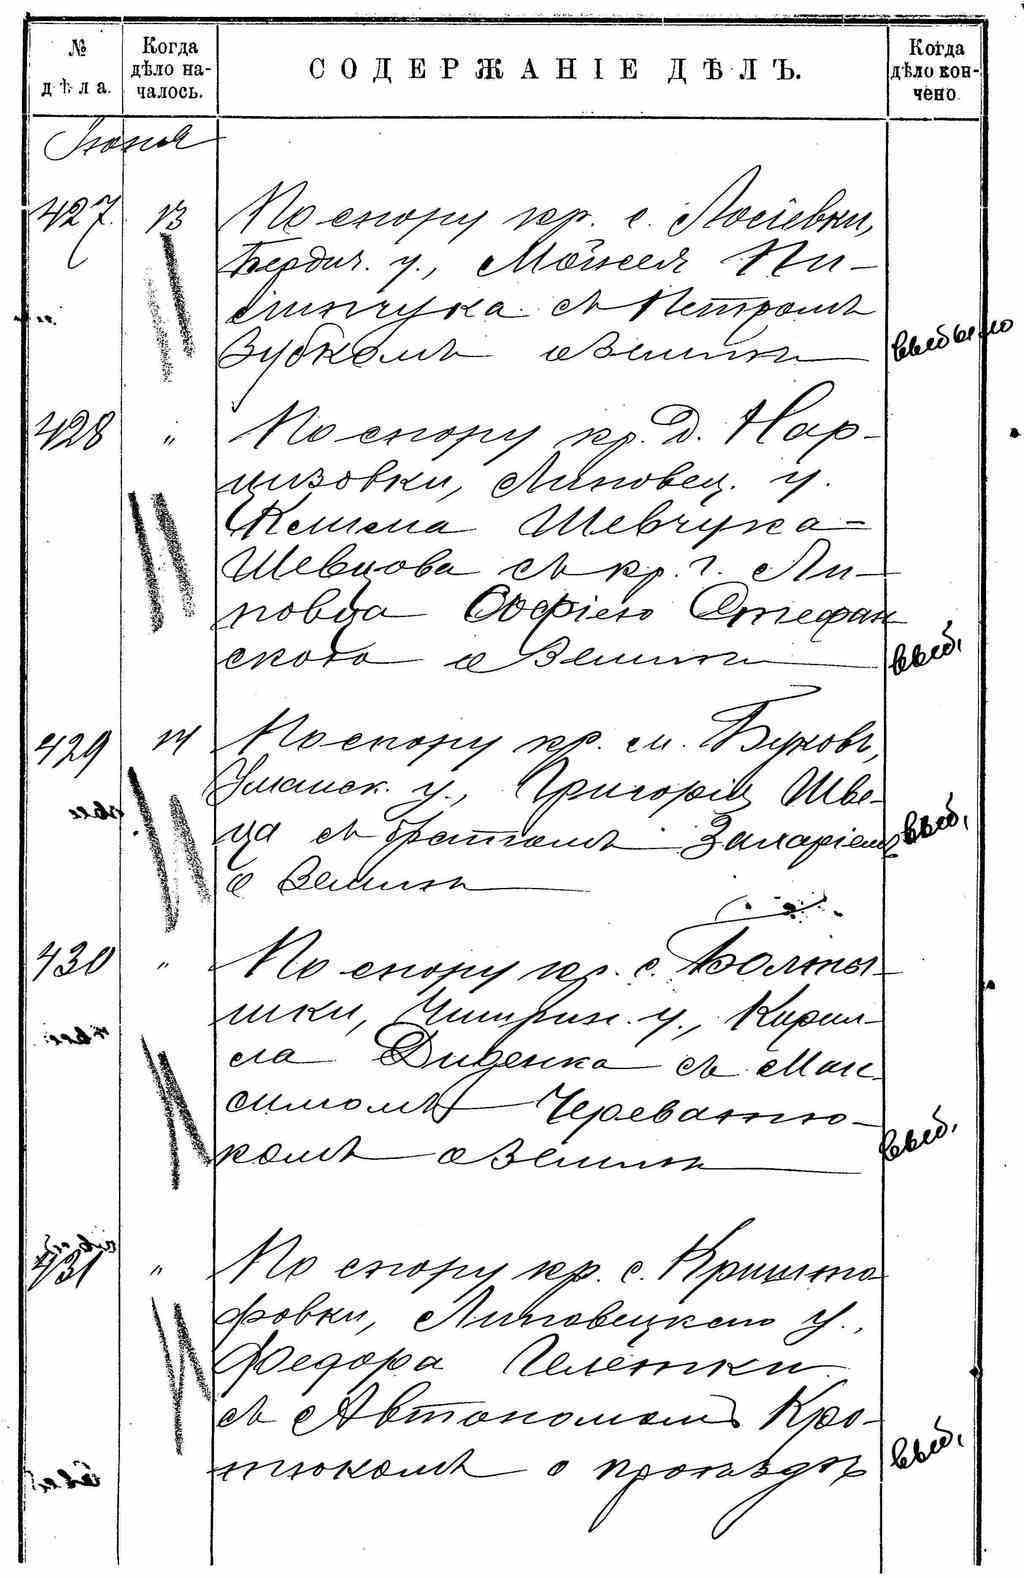 № дѣла.
Когда дѣло началось.
СОДЕРЖАНІЕ ДѢЛЪ.
Когда дѣло кончено
Іюня
427. 13 По спору кр. с. Лосіевки,
Бердич. у., Мойсея
съ Петромъ
Зубкомъ о землѣ
выбыло
428 " По спору кр. д. Нар-
цизовки, Липовец. у.
Климa Шевчука-
Шевцова съ кр. г. Ли-
повца Софіею Стефан
скою о землѣ
выб.
429 14 По спору кр. м. Буковъ,
Уманск. у., Григорія Шве-
ца съ братомъ Захаріемъ
о землѣ
выб.
430 " По спору кр. с. Болты-
шки, Чигирин. у., Кирил-
ла Диденка съ Мак-
симомъ Череватю-
комъ о землѣ
выб.
431 " По спору кр. с. Криштo
фовки, Липовецкаго у.,
Федора
съ Автономомъ Кро-
тюкомъ о проѣздѣ
выб.